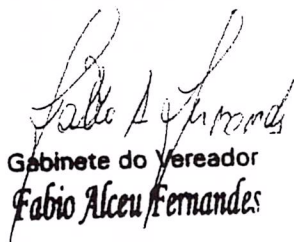 Fabio A Fernandes
Gabinete do Vereador
Fabio Alceu Fernandes